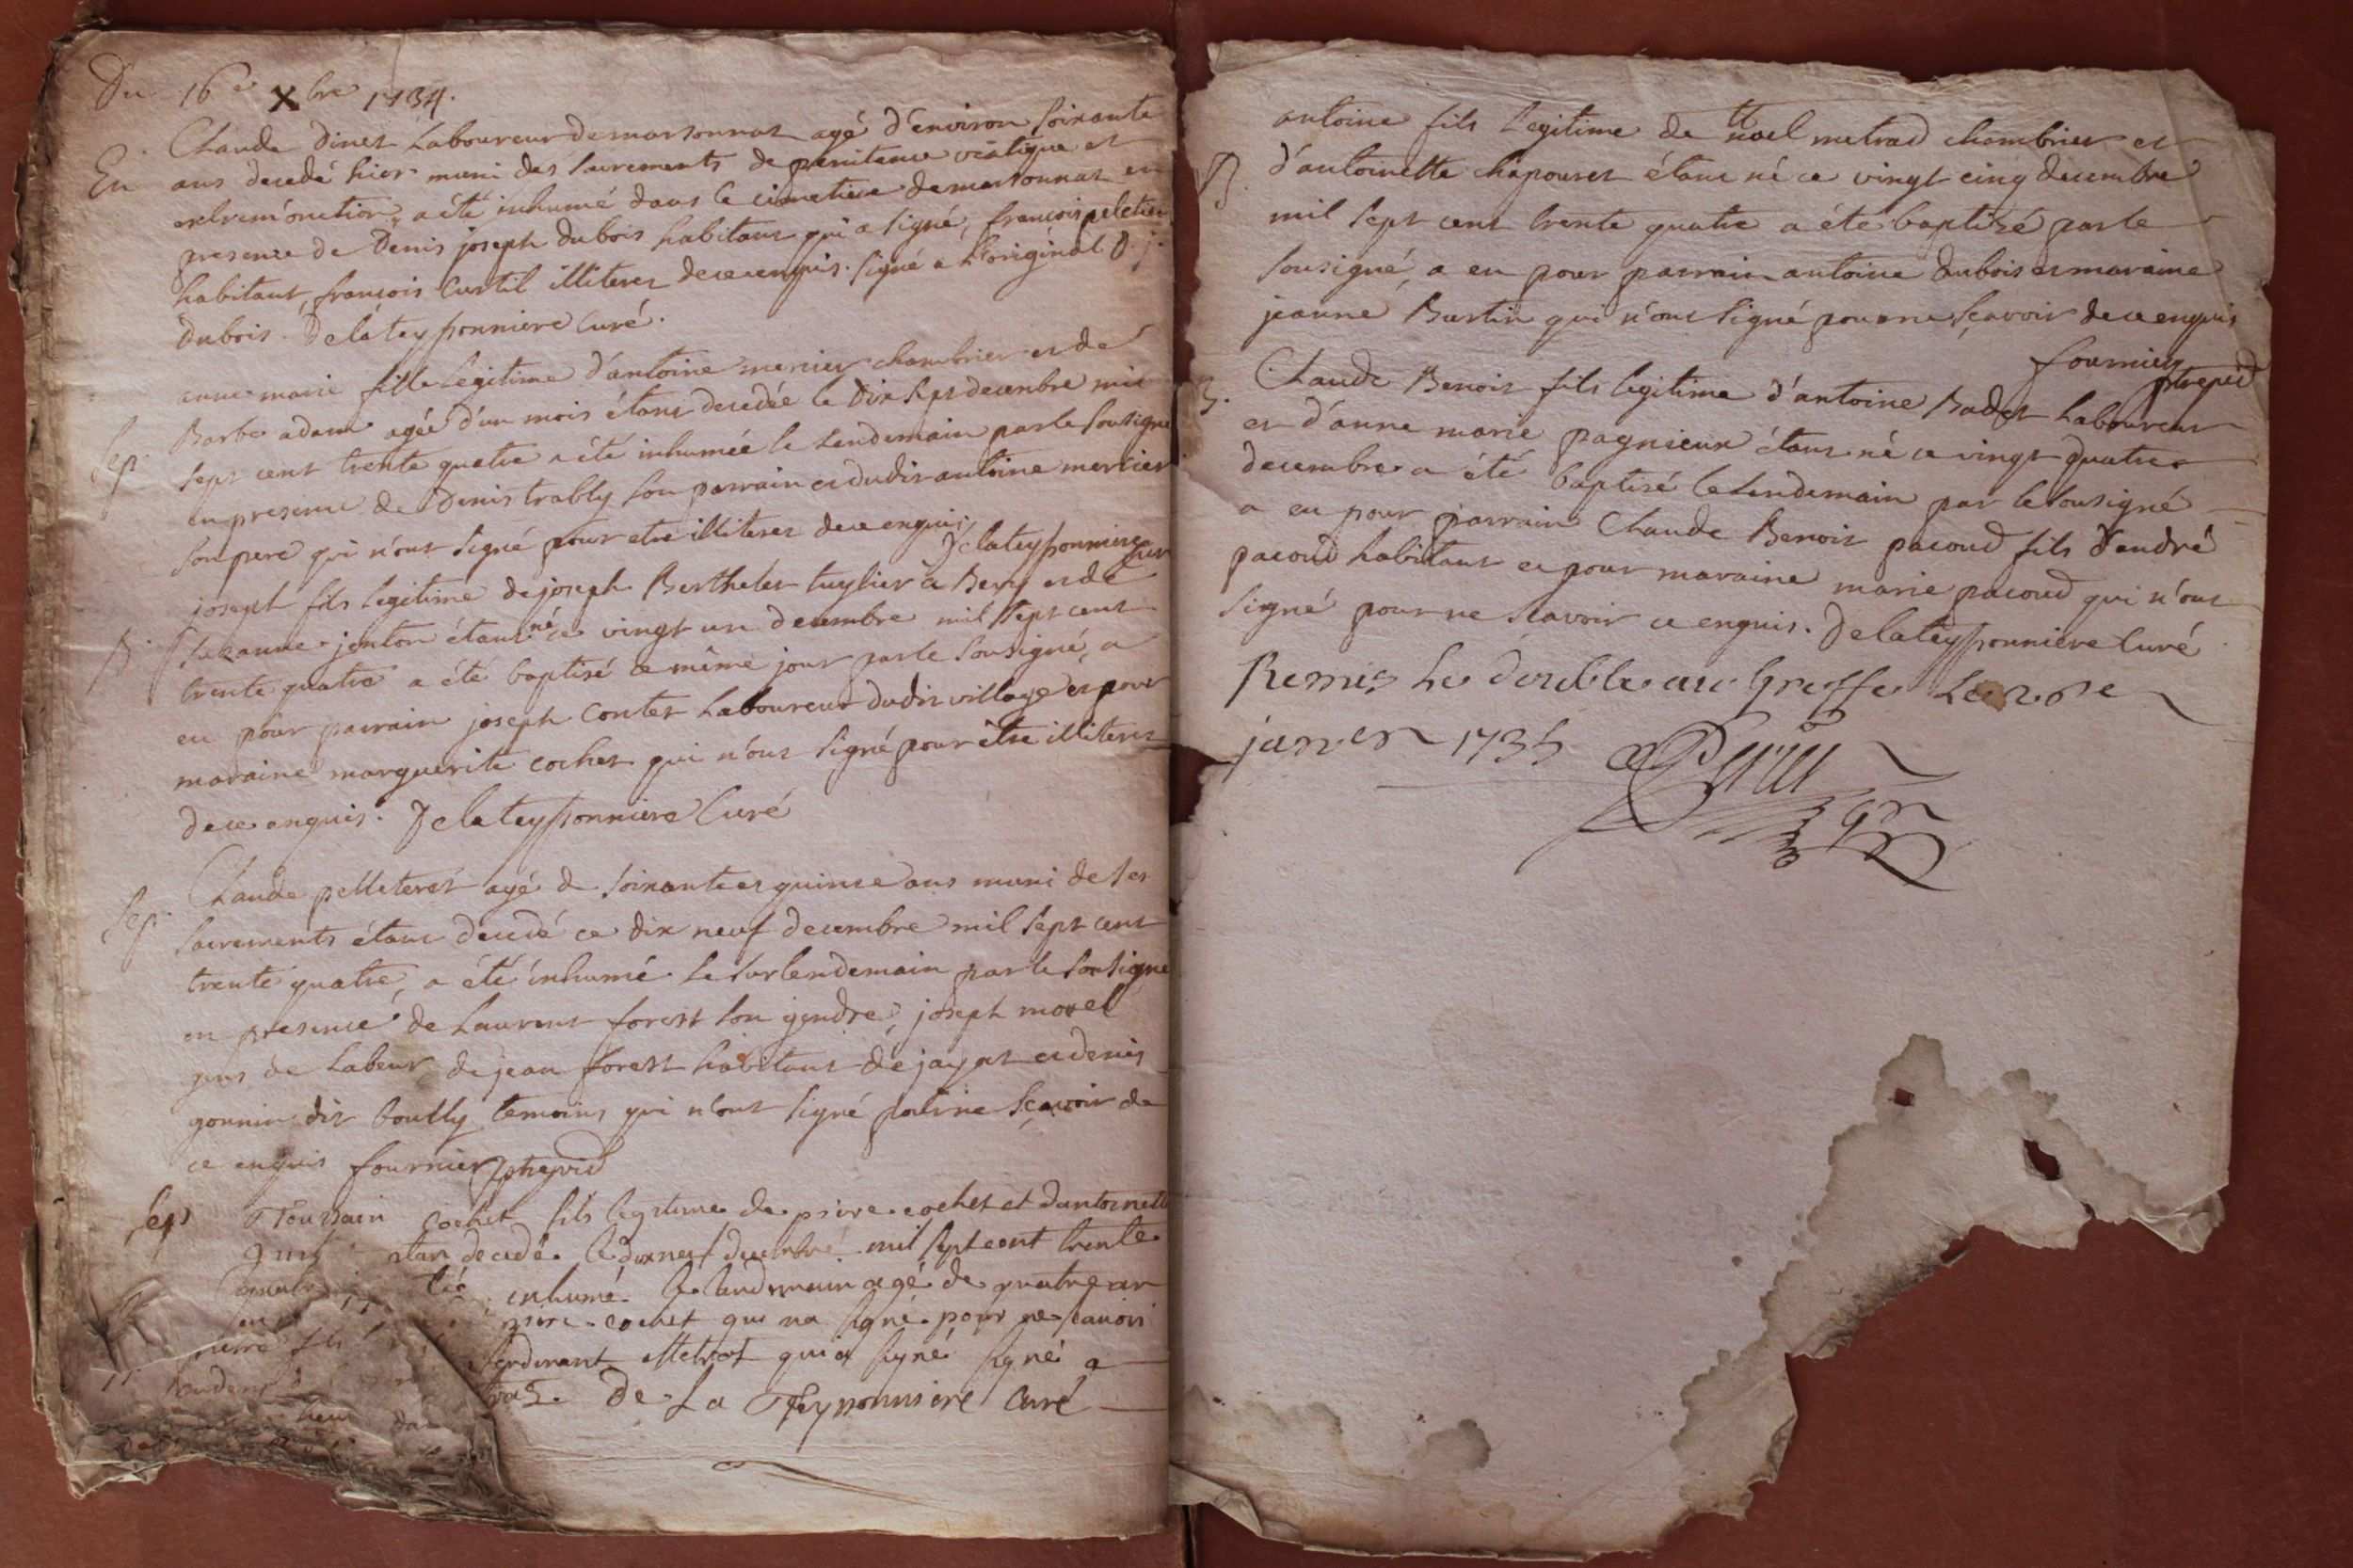 Du 16e Xbre 1734.
Claude Dinet Laboureur demarsonnas agé d'environ soixante
En ans decedé hier muni des sacrements de penitence viatique et
extrem'onction, a été inhumé dans le cimetiere demarsonnas en
presence de Denis joseph dubois habitant qui a signé, françois peletier
habitant, françois Curtil illiteres dece enquis. signé a l'original D. j.
Dubois. Delateyssonniere Curé.
anne marie fille legitime d'antoine mercier chambrier et de
Barbe adam agée d'un mois étant decedée le Dix sept decembre mil
Sep. sept cent trente quatre a été inhumée le Lendemain par le sousigné
en presence de Denis trably son parrain et dudit antoine mercier
son pere qui n'ont signé pour etre illiteres dece enquis Delateyssonniere
Curé
joseph fils legitime de joseph Berthelet tuylier a Bery et de
B. Suzanne jonton étant né ce vingt un decembre mil sept cent
trente quatre a été baptisé ce même jour par le sousigné, a
eu pour parrain joseph Contet Laboureur dudit village et pour
maraine marguerite cochet qui n'ont signé pour être illiteres
dece enquis. Delateyssonniere Curé
Claude pelleteret agé de soixante et quinze ans muni de ses
Sep. sacrements étant decedé ce dix neuf decembre mil sept cent
trente quatre, a été inhumé le surlendemain par le sousigné
en presence de Laurent forest son gendre, joseph morel
gens de Labeur de jean forest habitant de jayat et denis
gonnin dit boully temoins qui n'ont signé pour ne sçavoir de
ce enquis fournier
Sep Toussain cochet fils legitime de piere cochet et dantoinette
étan decedé le dixneuf decembre mil sept cent trente
quatre inhumé le lendemain agé de quatre an
piere cochet qui na signé pour ne scauoir
qui a signé signé a
De La Teyssonniere Curé
antoine fils legitime de noel metrad chambrier et
B. d'antoinette chapouret étant né ce vingt cinq decembre
mil sept cent trente quatre a été baptisé par le
sousigné, a eu pour parrain antoine dubois et maraine
jeanne Burtin qui n'ont signé pour ne sçavoir de ce enquis
fournier
B. Claude Benoit fils legitime d'antoine Badet Laboureur
et d'anne marie pagnieux étant né ce vingt quatre
decembre a été baptisé le Lendemain par le sousigné
a eu pour parrain Claude Benoit pacoud fils d'andré
pacoud habitant et pour maraine marie pacoud qui n'ont
signé pour ne scavoir ce enquis. Delateyssonniere Curé
Remis Le double au Greffe Le
janvier 1735